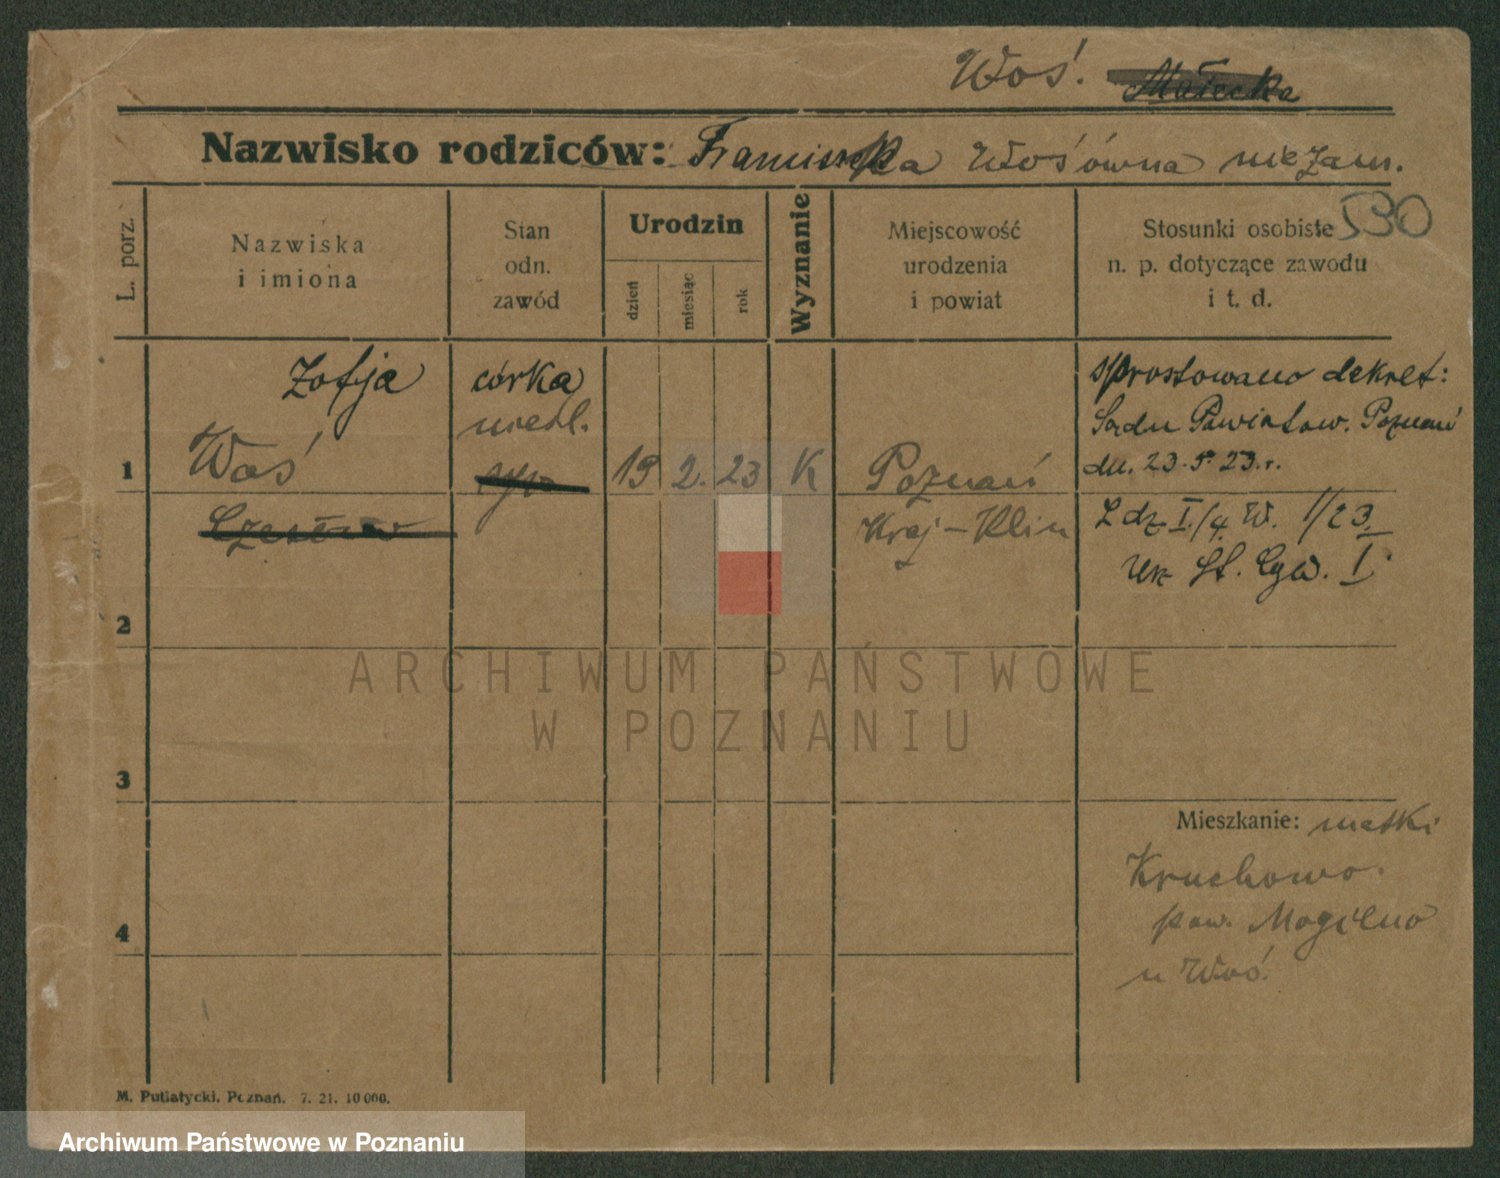 Woś. Małecka
Nazwisko rodziców: Franciszka Wośówna niezam.
530
L. porz.
Nazwiska
i imiona
Stan
odn.
zawód
Urodzin
dzień
miesiąc
rok
Wyznanie
Miejscowość
urodzenia
i powiat
Stosunki osobiste
n. p. dotyczące zawodu
i t. d.
Zofja córka
nieśl.
1 Woś 19 2. 23 K Poznań
Kraj-Klin
sprostowano dekret:
Sądu Powiatow. Poznań
dn. 23.5.23.r.
L dz I./4 W. 1/23
St. Cyw. I
2
3
4
Mieszkanie: matki
Kruchowo.
pow. Mogilno
u Woś.
M. Putiatycki, Poznań. 7. 21. 10 000.
ARCHIWUM PAŃSTWOWE
W POZNANIU
Archiwum Państwowe w Poznaniu